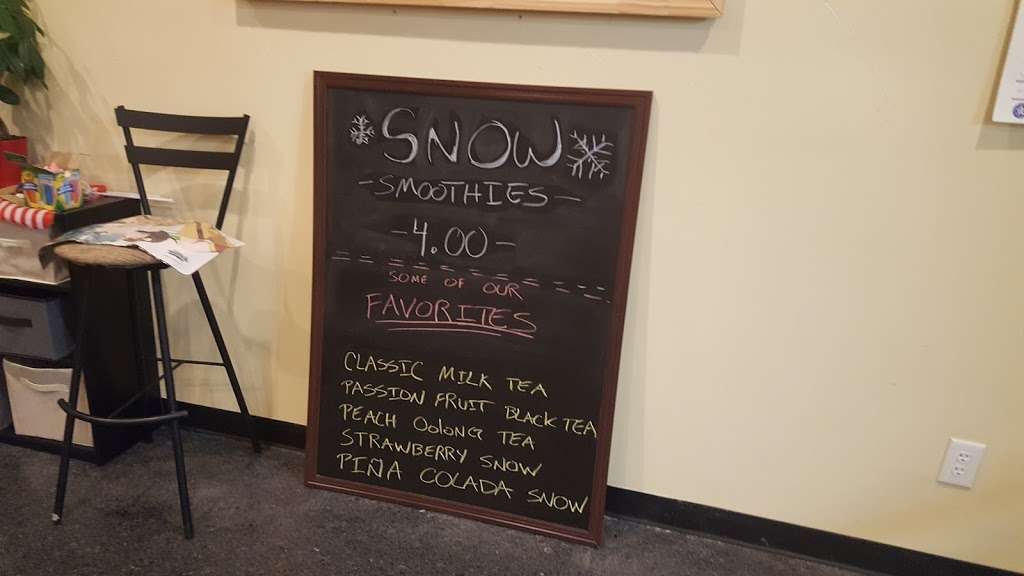 SNOW
-SMOOTHIES-
-4.00-
SOME OF OUR
FAVORITES
CLASSIC MILK TEA
PASSION FRUIT BLACK TEA
PEACH OOLONG TEA
STRAWBERRY SNOW
PIÑA COLADA SNOW